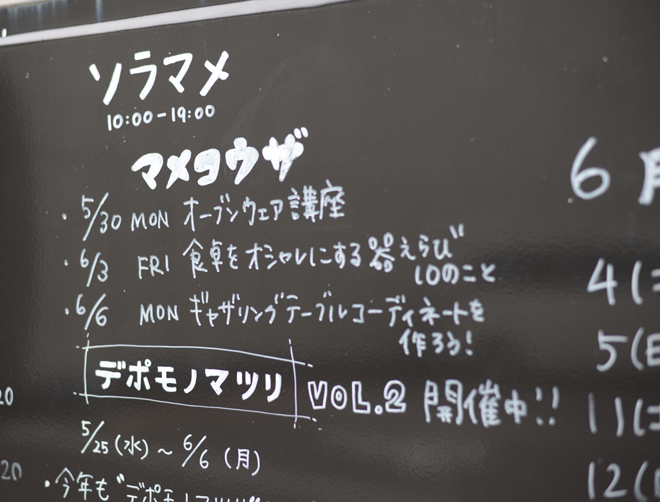 ソラマメ
10:00-19:00
マメコウザ
・5/30 MON オーブンウェア講座
・6/3 FRI 食卓をオシャレにする器えらび
10のこと
・6/6 MON ギャザリングテーブルコーディネートを
作ろう!
デポモノマツリ VOL.2 開催中!!
5/25(水)~6/6(月)
・今年も"デポモノマツリ
6月
4(
5(日
11(
12(
20
20